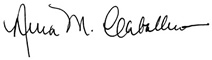 Anna M. Caballero